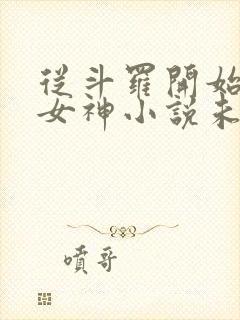 從斗羅開始
女神小說未
噴哥